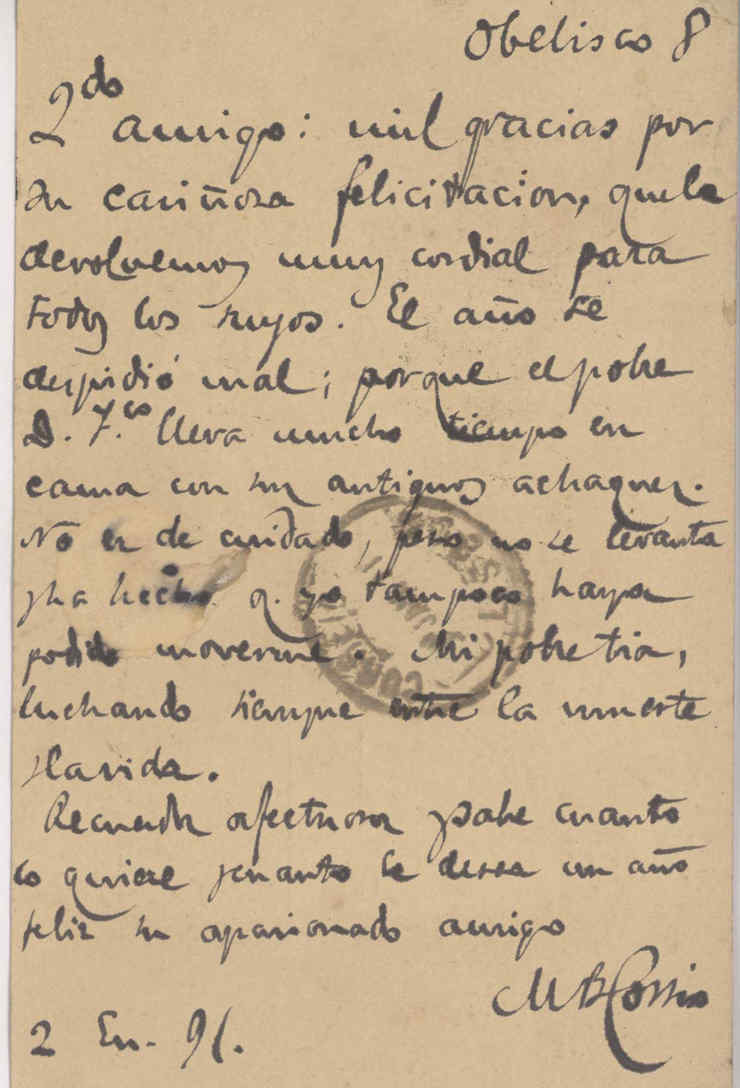 Obelisco 8
Qdo
amigo: mil gracias por
su cariñosa felicitacion, que le
devolvemos muy cordial para
todos los suyos. El año se
despidió mal; porque el pobre
D. F.co lleva mucho tiempo en
cama con sus antiguos achaques.
No es de cuidado, pero no se levanta
y ha hecho q. yo tampoco haya
podido moverme. Mi pobre tia,
luchando siempre entre la muerte
y la vida.
Recuerdos afectuosos y sabe cuanto
lo quiere y cuanto le desea un año
feliz su apasionado amigo
M B Cossio
2 En. 91.
CORREOS